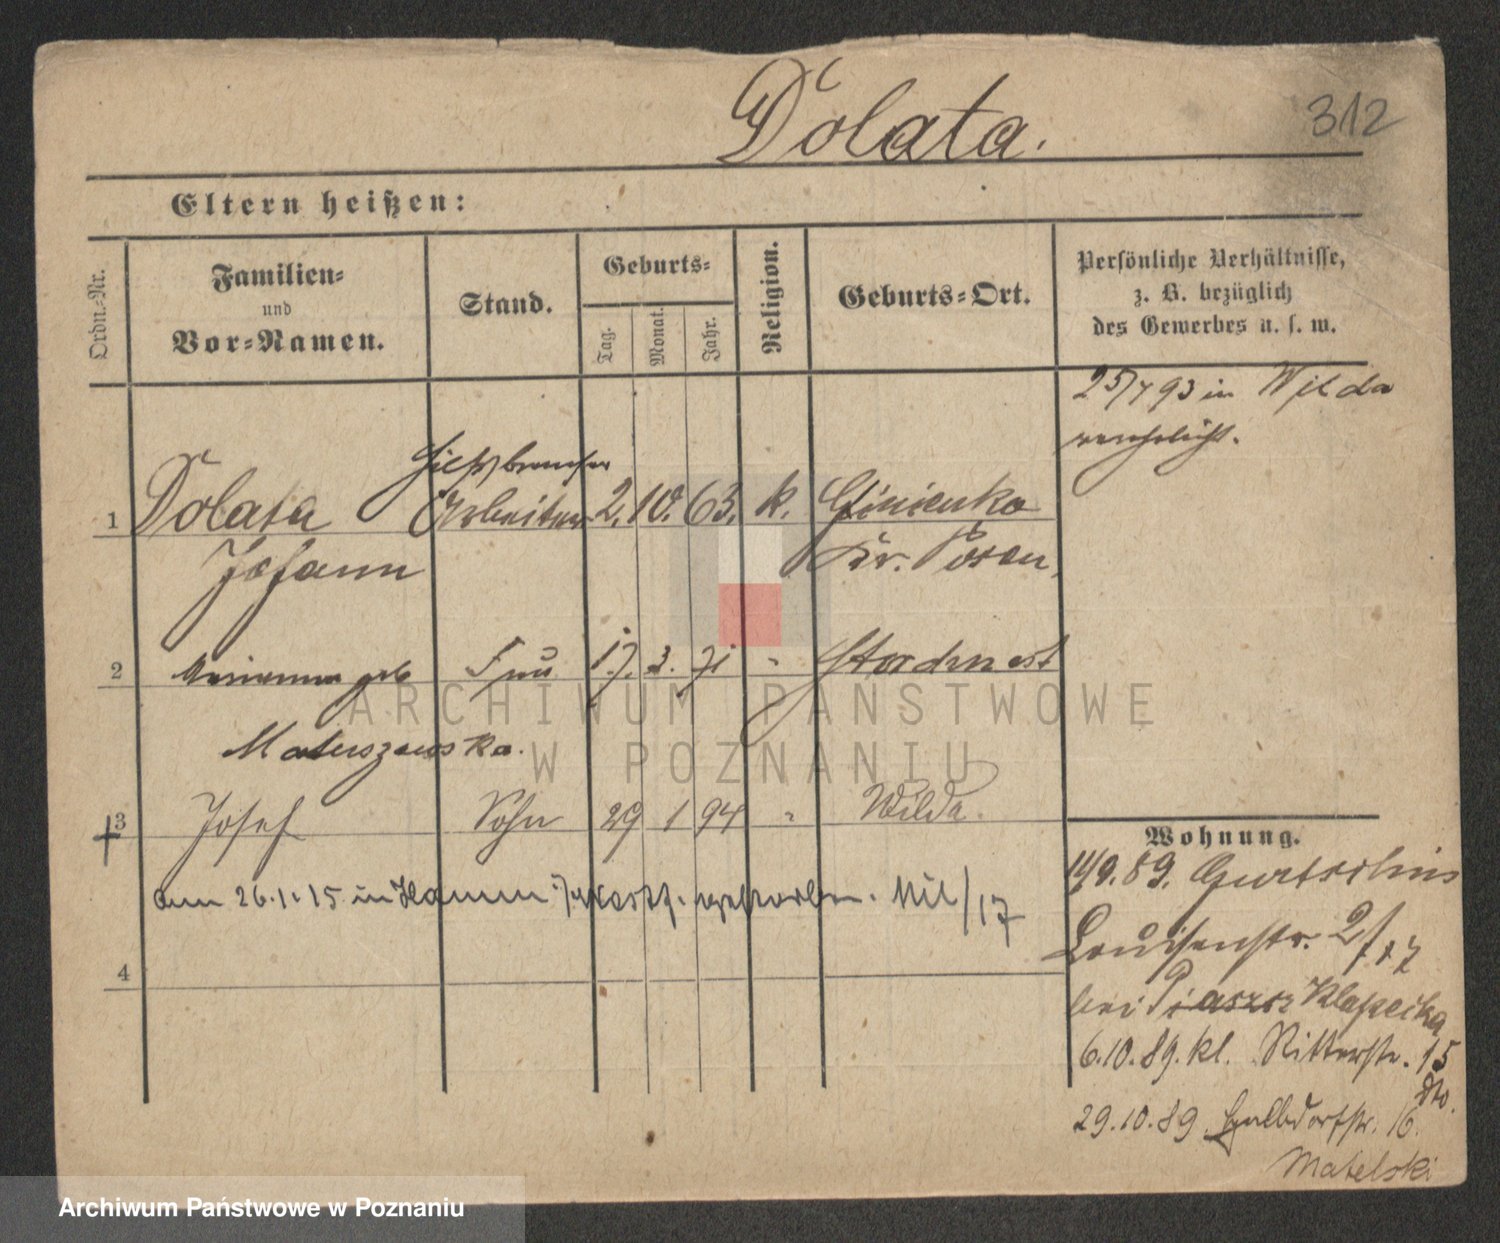 Dolata.
312
Eltern heißen:
Ordn.-Nr.
Familien-
und
Vor-Namen.
Stand.
Geburts-
Tag.
Monat.
Jahr.
Religion.
Geburts-Ort.
Persönliche Verhältnisse,
z. B. bezüglich
des Gewerbes u. s. w.
25/7 93 in Wilda
verehelicht.
Hilfsbremser
1 Dolata Arbeiter 2. 10. 63. k. Glinienko
Johann Kr. Posen
2 Marianna geb Frau 17. 3. 71 "
Mateuszewska.
3 Josef Sohn 29 1 94 " Wilda.
am 26.1.15 in Hamm gestorben. Mil/17
4
Wohnung.
11/9.89. Gurtschin
Louisenstr.
bei Piaszcz Klapecka
6.10.89. kl. Ritterstr. 15
29.10.89. 16.
Matelski
ARCHIWUM PAŃSTWOWE
W POZNANIU
Archiwum Państwowe w Poznaniu